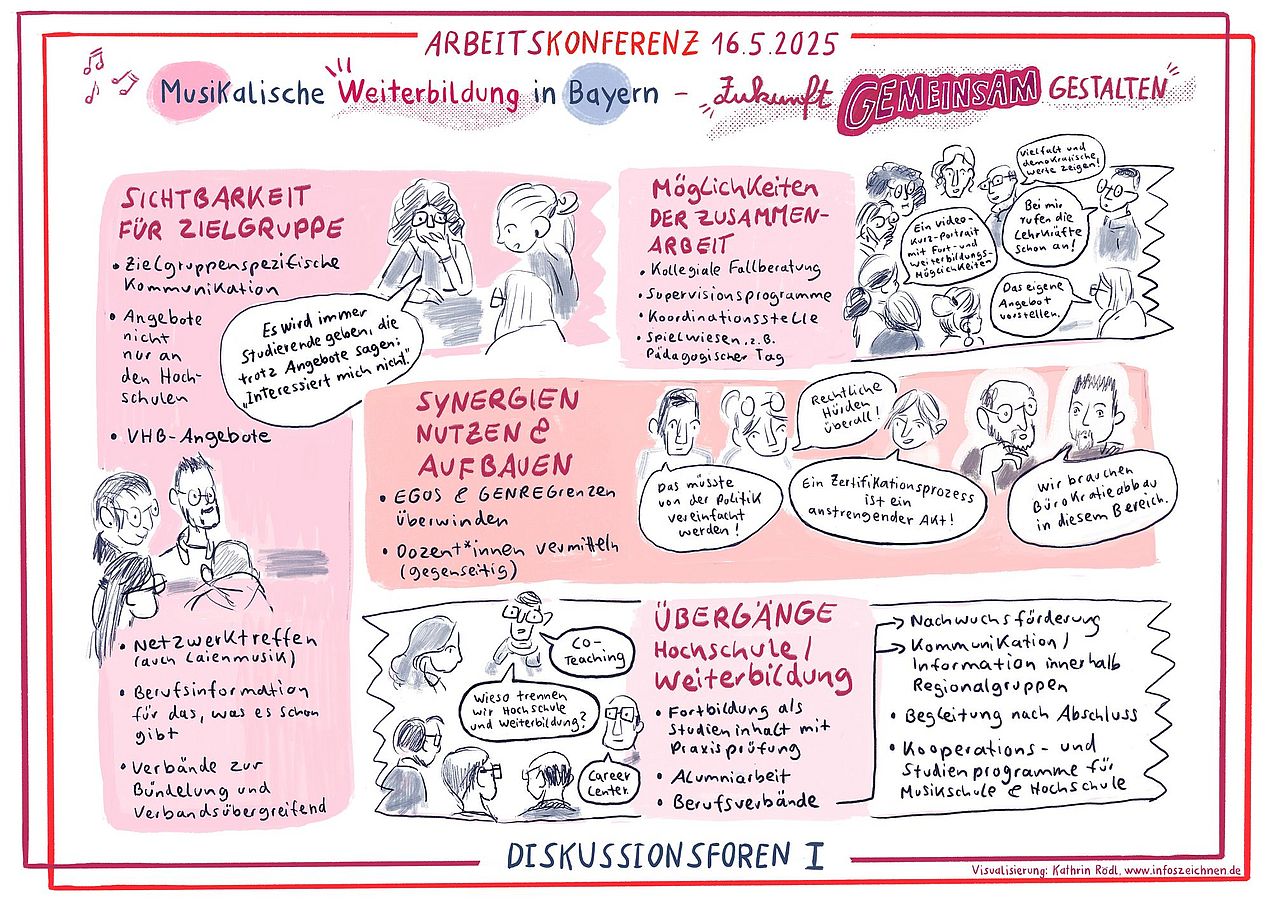 ARBEITSKONFERENZ 16.5.2025
Musikalische Weiterbildung in Bayern – Zukunft GEMEINSAM GESTALTEN
SICHTBARKEIT
FÜR ZIELGRUPPE
• Zielgruppenspezifische
Kommunikation
• Angebote
nicht
nur an
den Hoch-
schulen
• VHB-Angebote
Es wird immer
Studierende geben, die
trotz Angebote sagen:
„Interessiert mich nicht."
• Netzwerktreffen
(auch Laienmusik)
• Berufsinformation
für das, was es schon
gibt
• Verbände zur
Bündelung und
Verbandsübergreifend
Möglichkeiten
DER ZUSAMMEN-
ARBEIT
• Kollegiale Fallberatung
• Supervisionsprogramme
• Koordinationsstelle
• Spielwiesen, z.B.
Pädagogischer Tag
Vielfalt und
demokratische
Werte zeigen!
Ein Video-
Kurz-Portrait
mit Fort- und
Weiterbildungs-
Möglichkeiten
Bei mir
rufen die
Lehrkräfte
schon an!
Das eigene
Angebot
vorstellen.
SYNERGIEN
NUTZEN &
AUFBAUEN
• EGOS & GENREGrenzen
überwinden
• Dozent*innen vermitteln
(gegenseitig)
Das müsste
von der Politik
vereinfacht
werden!
Rechtliche
Hürden
überall!
Ein Zertifikationsprozess
ist ein
anstrengender Akt!
Wir brauchen
Bürokratieabbau
in diesem Bereich.
Co-
Teaching
Wieso trennen
wir Hochschule
und Weiterbildung?
Career
Center.
ÜBERGÄNGE
Hochschule/
Weiterbildung
• Fortbildung als
Studieninhalt mit
Praxisprüfung
• Alumniarbeit
• Berufsverbände
→ Nachwuchsförderung
→ Kommunikation/
Information innerhalb
Regionalgruppen
• Begleitung nach Abschluss
• Kooperations- und
Studienprogramme für
Musikschule & Hochschule
DISKUSSIONSFOREN I
Visualisierung: Kathrin Rödl, www.infoszeichnen.de